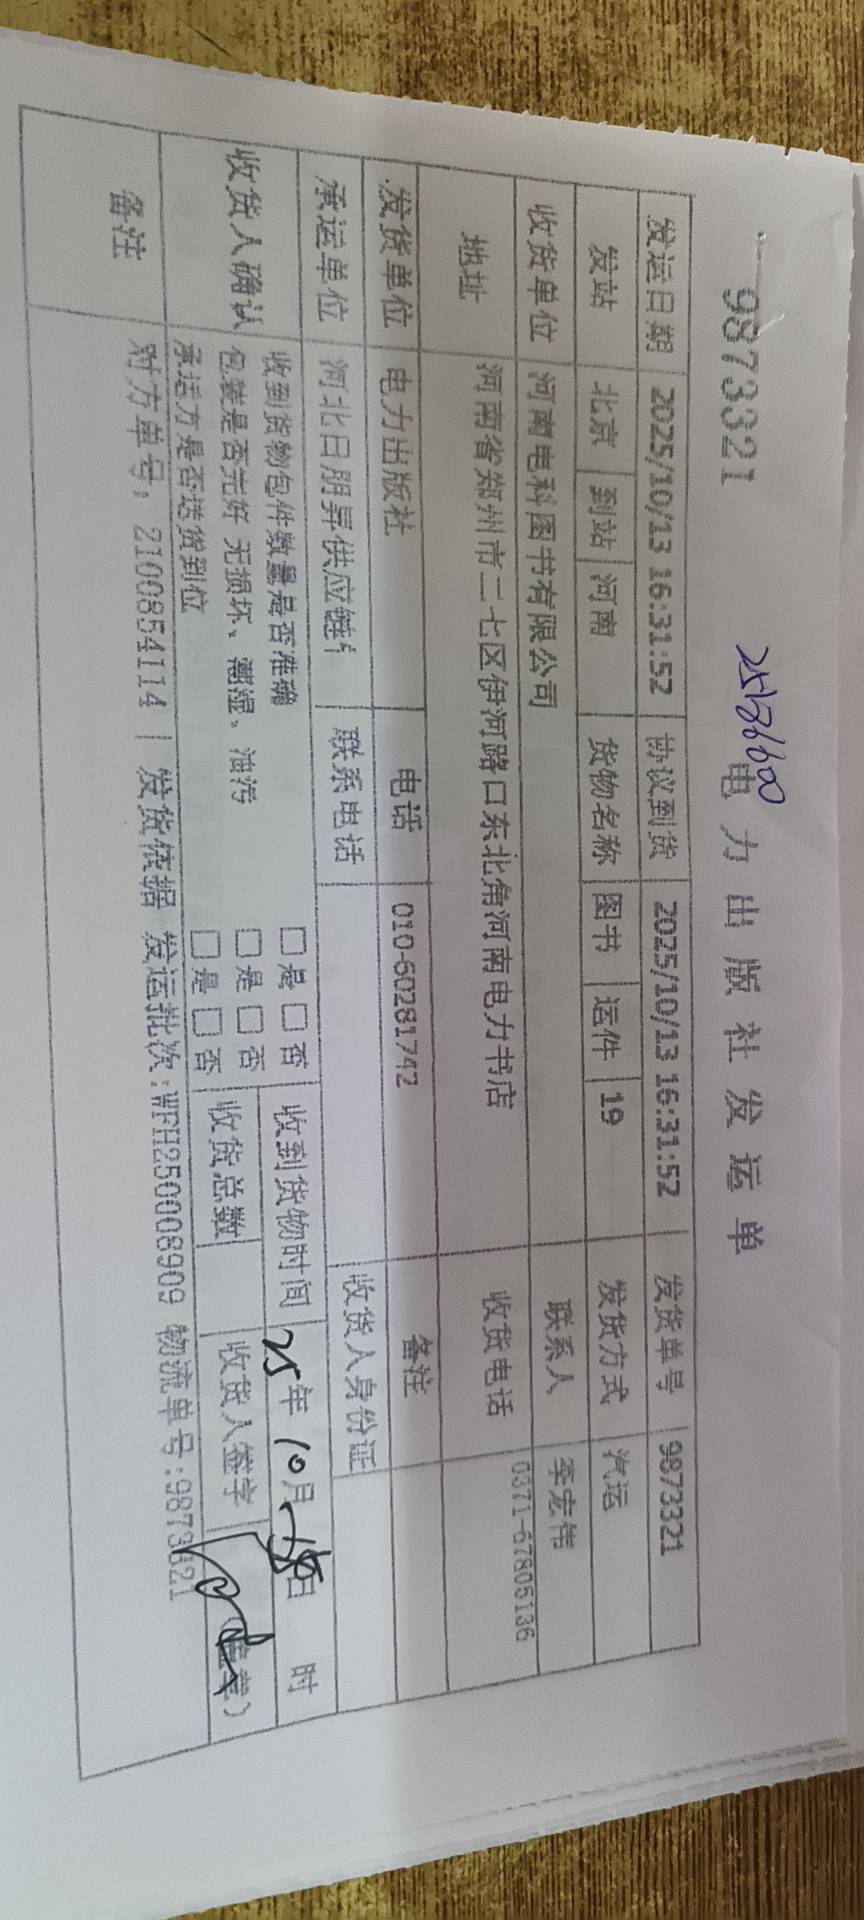 9873321
电力出版社发运单
发运日期 2025/10/13 16:31:52 协议到货 2025/10/13 16:31:52 发货单号 9873321
发站 北京 到站 河南 货物名称 图书 运件 19 发货方式 汽运
收货单位 河南电科图书有限公司 联系人 李宏伟
地址 河南省郑州市二七区伊河路口东北角河南电力书店 收货电话 0371-67805136
发货单位 电力出版社 电话 010-60281742 备注
承运单位 河北日朋昇供应链 联系电话 收货人身份证
收货人确认 收到货物包件数量是否准确 □是□否 收到货物时间 25年10月 日 时
包装是否完好 无损坏、潮湿、油污 □是□否 收货总数 收货人签字 (盖章)
承运方是否送货到位 □是□否
备注 对方单号:2100854114 | 发货依据 发运批次:WFH250008909 物流单号:9873321